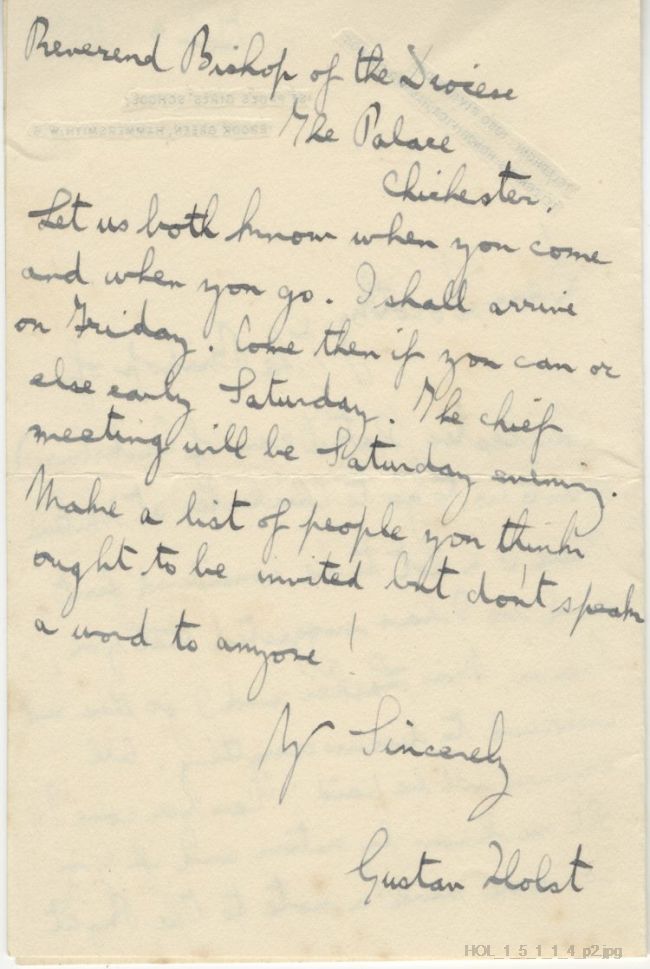 Reverend Bishop of the Diocese
The Palace
Chichester.
Let us both know when you come
and when you go. I shall arrive
on Friday. Come then if you can or
else early Saturday. The chief
meeting will be Saturday evening.
Make a list of people you think
ought to be invited but don't speak
a word to anyone!
Yr Sincerely
Gustav Holst
HOL_1_5_1_1_4_p2.jpg